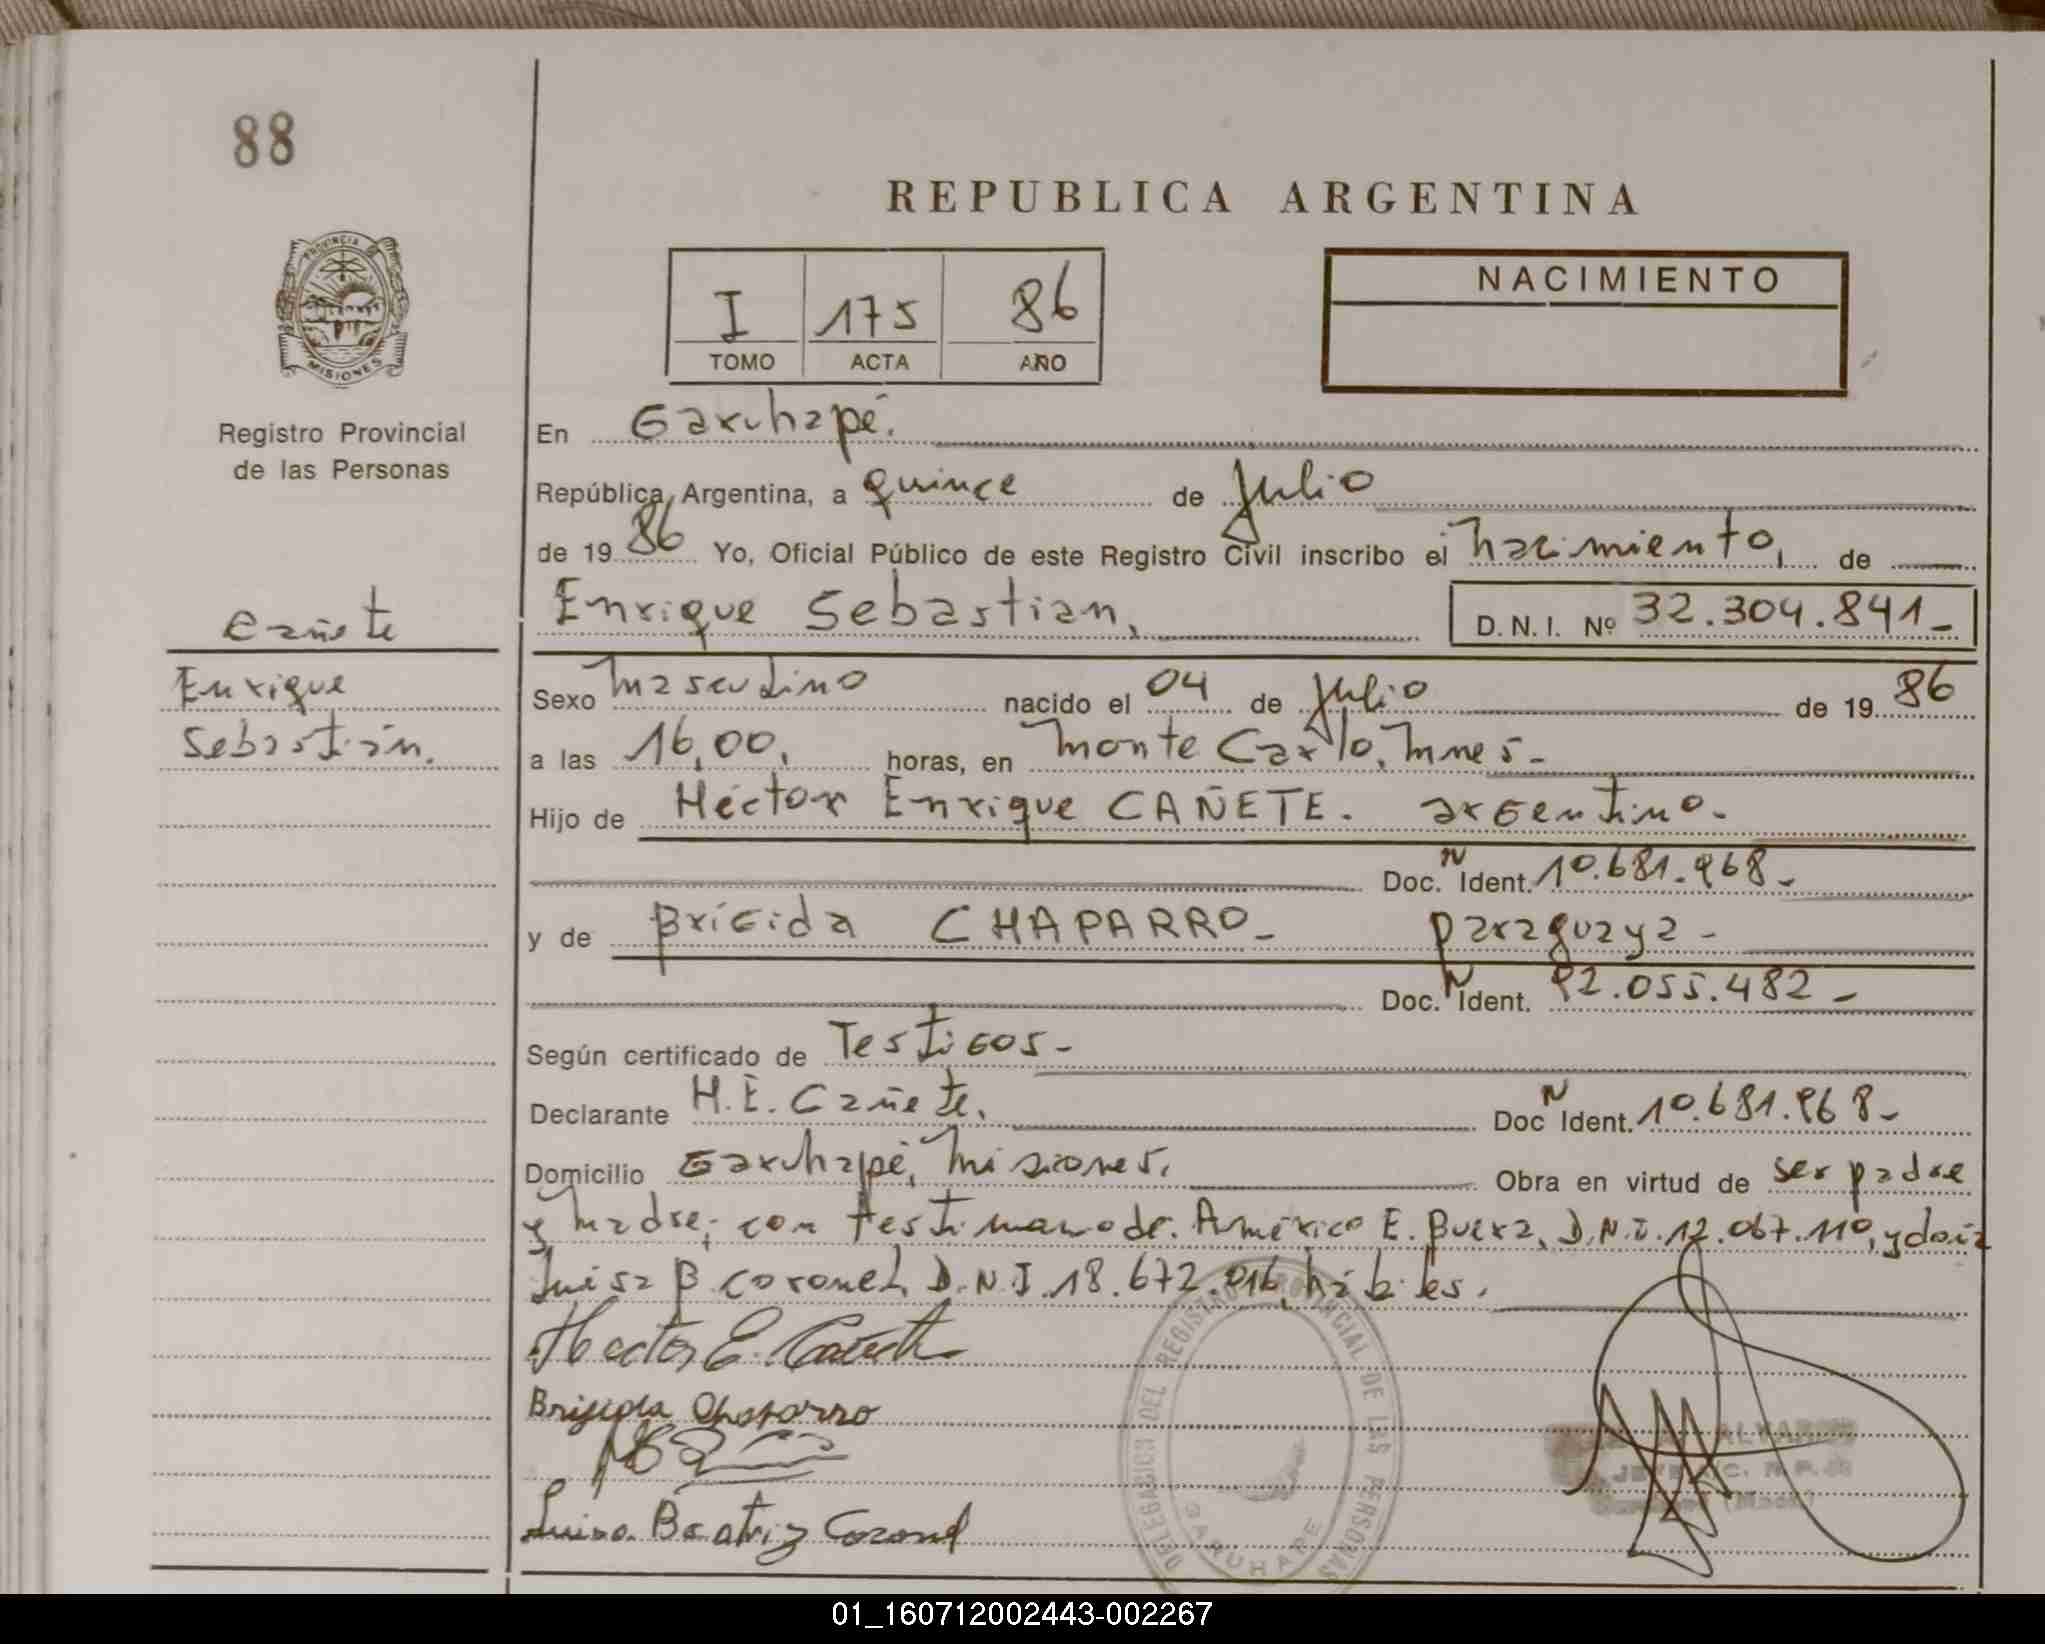 88
REPUBLICA ARGENTINA
PROVINCIA DE
MISIONES
Registro Provincial
de las Personas
I 175 86
TOMO ACTA AÑO
NACIMIENTO
En Garuhapé.
República Argentina, a quince de Julio
de 19 86 Yo, Oficial Público de este Registro Civil inscribo el nacimiento, de
Enrique Sebastian, D.N.I. Nº 32.304.841-
Cañete
Enrique
Sebastián.
Sexo masculino nacido el 04 de Julio de 19 86
a las 16,00, horas, en Monte Carlo, Mnes-
Hijo de Héctor Enrique CAÑETE. argentino.
Doc. N Ident. 10.681.968-
y de Brígida CHAPARRO- paraguaya-
Doc. N Ident. 92.055.482-
Según certificado de Testigos-
Declarante H.E. Cañete. Doc N Ident. 10.681.968-
Domicilio Garuhapé, Misiones. Obra en virtud de ser padre
y madre; con testimonio de: Américo E. D.N.I. 12.067.110, y doña
Luisa B Coronel, D.N.I. 18.672.016, hábiles.
Hector E. Cañete
Brigida Chaparro
Luisa Beatriz Coronel
DELEGACION DEL REGISTRO PROVINCIAL DE LAS PERSONAS
GARUHAPE
01_160712002443-002267